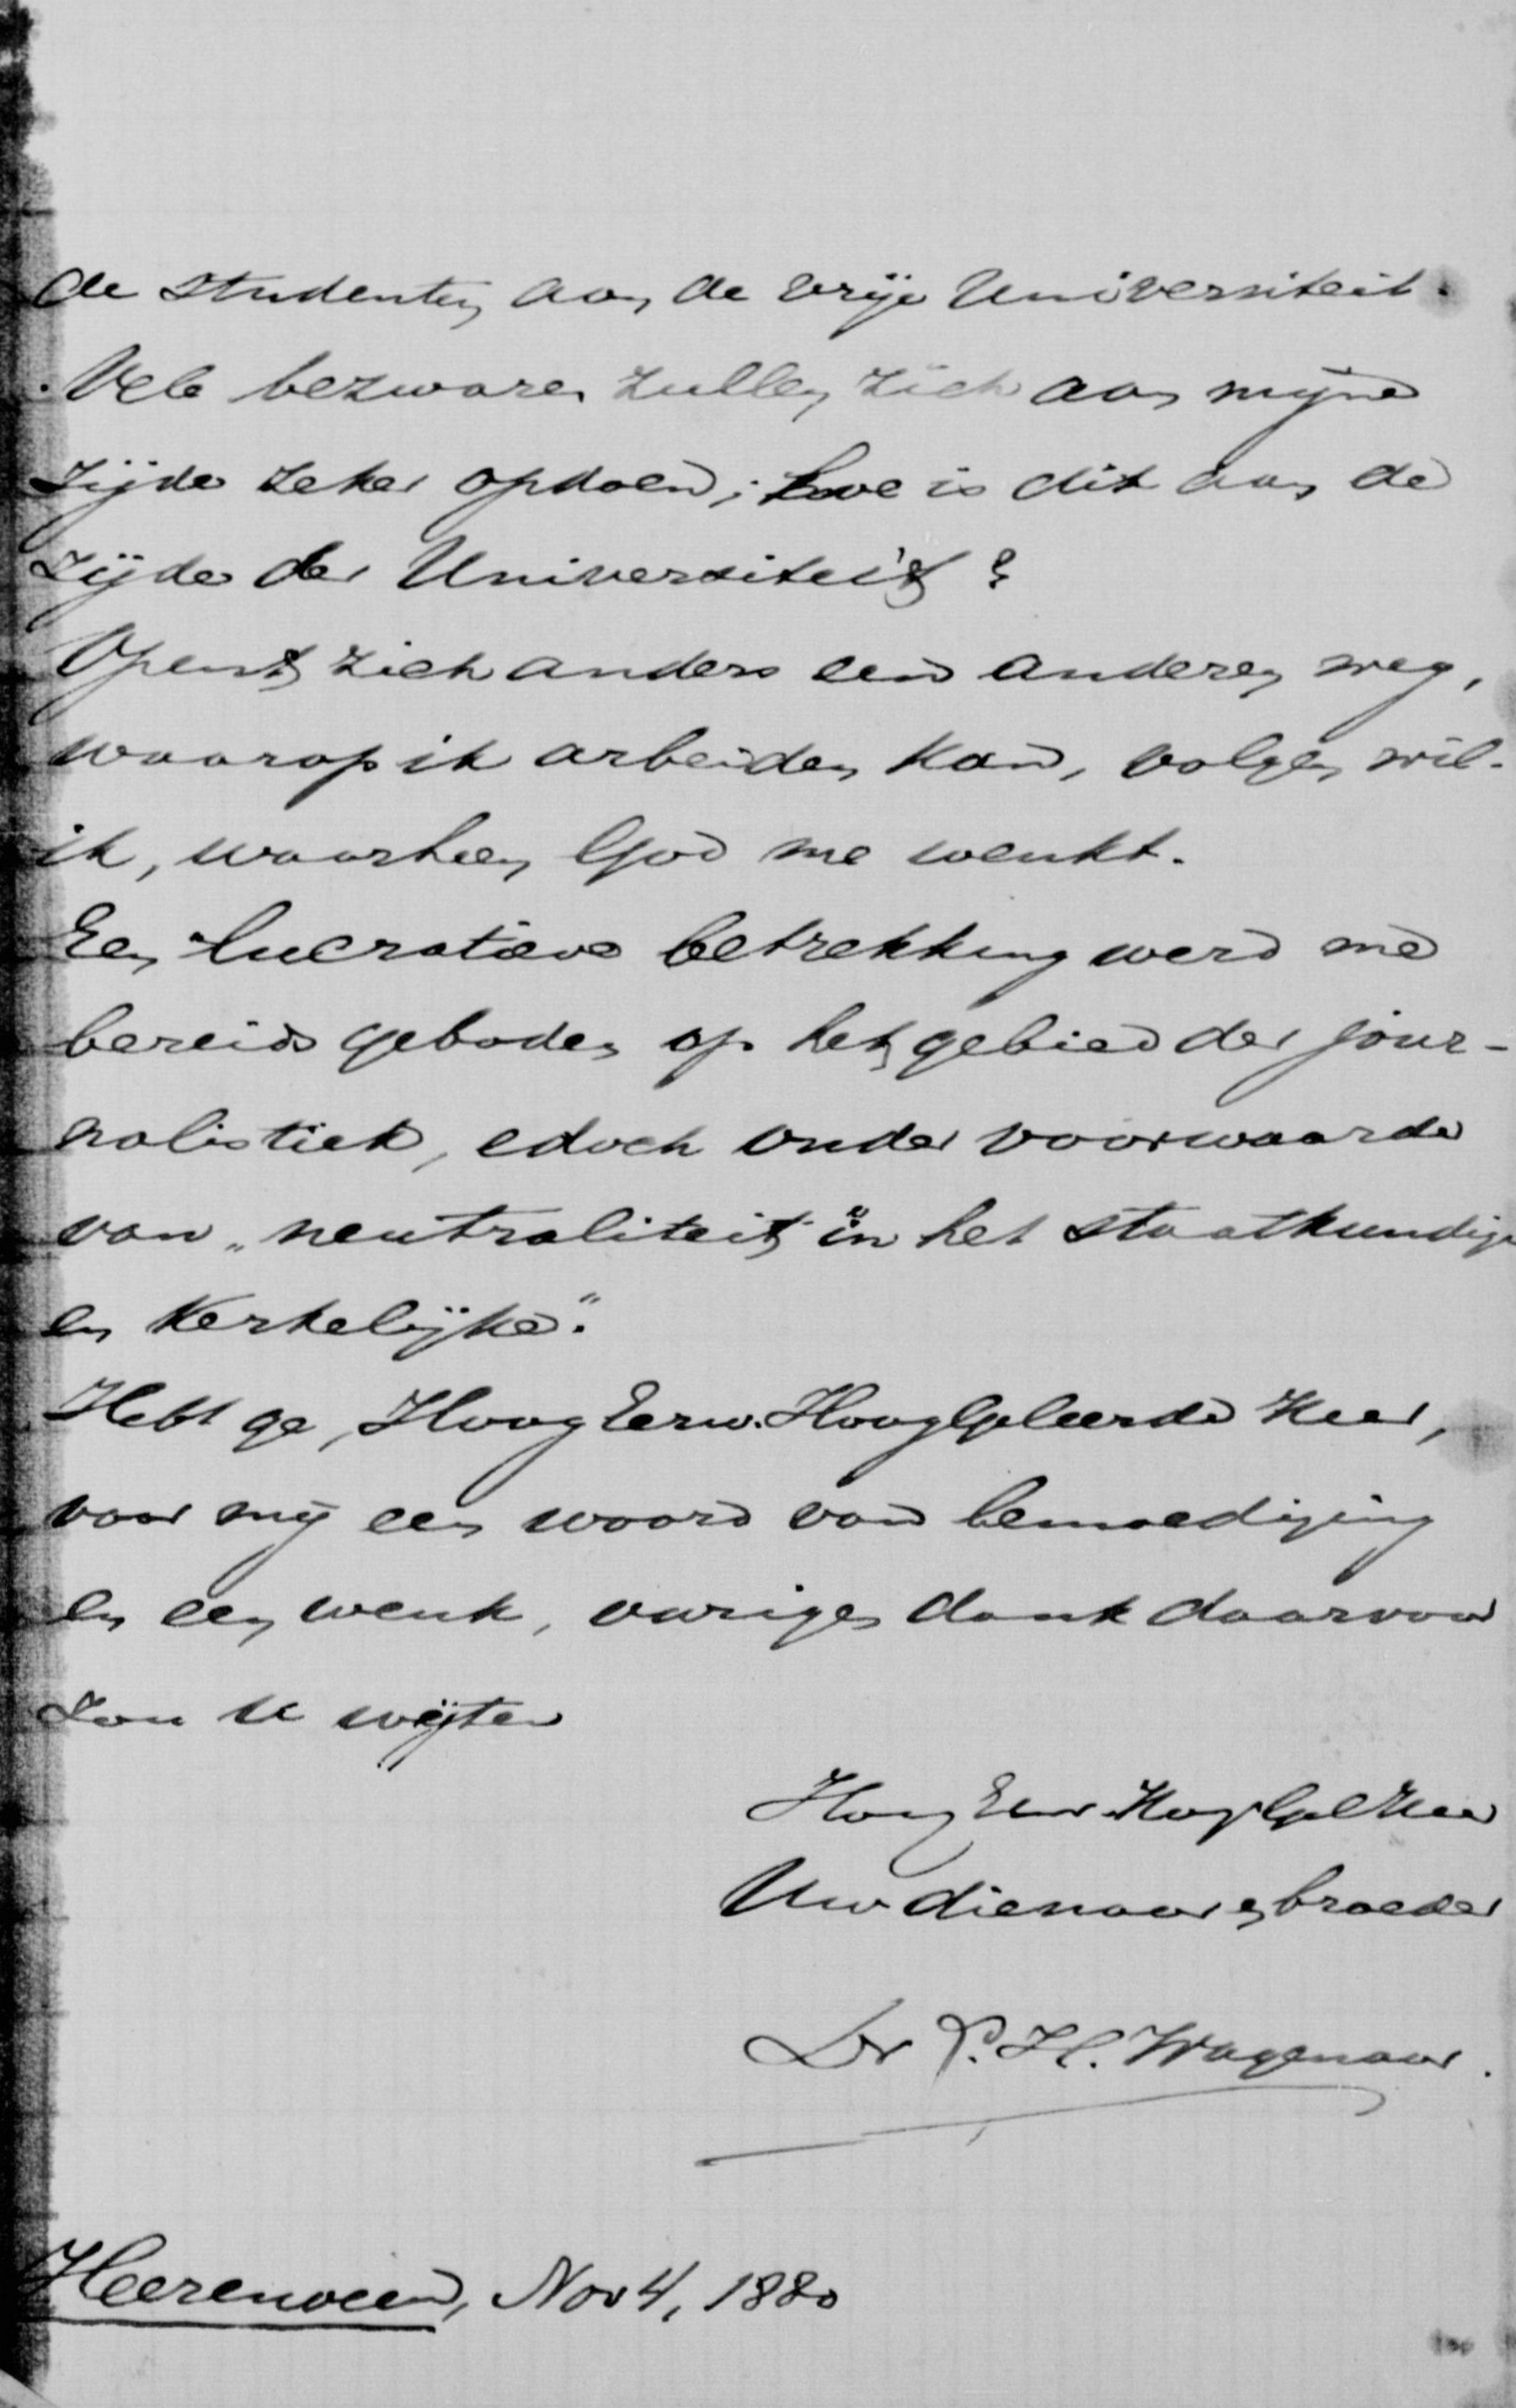 de studenten aan de vrije Universiteit.
Vele bezwaren zullen zich aan mijne
zijde zeker opdoen; hoe is dit aan de
zijde der Universiteit?
Opent zich anders een anderen weg,
waarop ik arbeiden kan, volgen wil
ik, waarheen God me wenkt.
Een lucratieve betrekking werd me
bereids geboden op het gebied der jour-
nalistiek, edoch onder voorwaarde
van „neutraliteit" in het staatkundige
en kerkelijke".
Hebt ge, HoogEerw. HoogGeleerde Heer,
voor mij een woord van bemoediging
en een wenk, vurigen dank daarvoor
zou U wijten
HoogEerw. HoogGel Heer
Uw dienaar en broeder
Dr P. H. Wagenaar.
Heerenveen, Nov 4, 1880